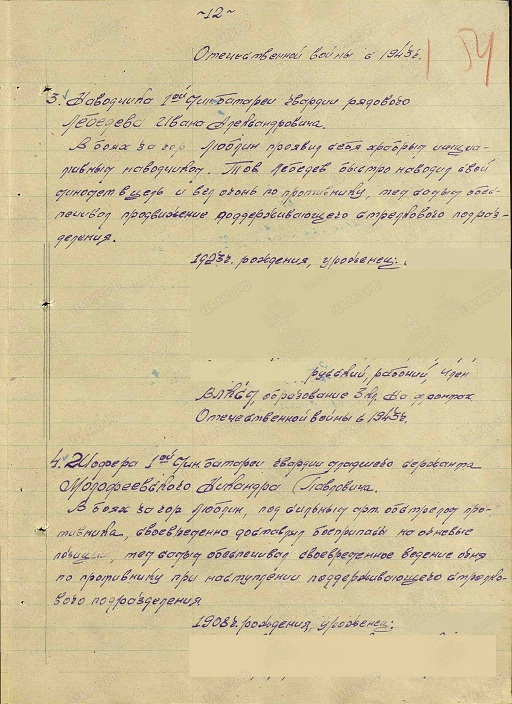 ~12~
Отечественной войны с 1943г.
54
3. Наводчика 1ой Минбатареи гвардии рядового
Лебедева Ивана Александровича.
В боях за гор. Люблин проявил себя храбрым инициа-
тивным наводчиком. Тов. Лебедев быстро наводил свой
миномет в цель и вел огонь по противнику, тем самым обес-
печивал продвижение поддерживающего стрелкового подраз-
деления.
1923г. рождения, уроженец:
русский, рабочий, член
ВЛКСМ, образование 3кл. На фронтах
Отечественной войны с 1943г.
4. Шофера 1ой Минбатареи гвардии младшего сержанта
Павловича.
В боях за гор. Люблин, под сильным арт. обстрелом про-
тивника, своевременно доставлял боеприпасы на огневые
позиции, тем самым обеспечивал своевременное ведение огня
по противнику при наступлении поддерживающего стрелко-
вого подразделения.
1908г. рождения, уроженец: